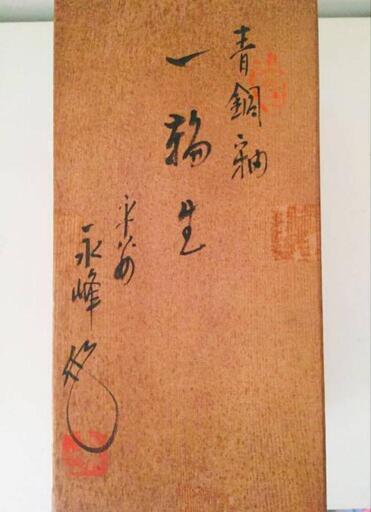 青銅釉
一輪生
平安
永峰